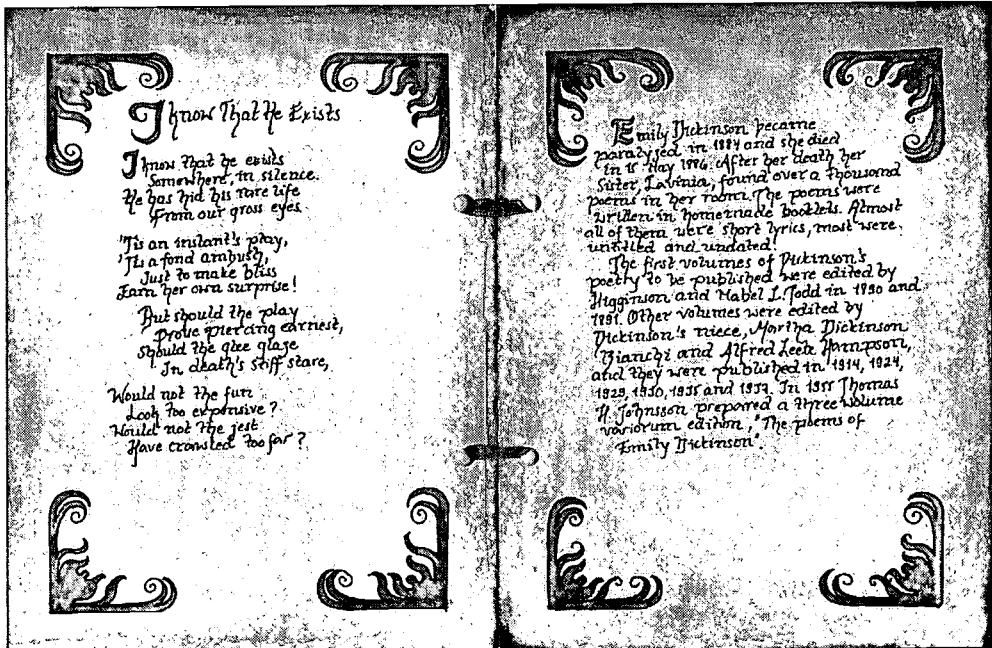 I know That He Exists
I know that he exists
Somewhere, in silence.
He has hid his rare life
From our gross eyes
'Tis an instant's play,
'Tis a fond ambush,
Just to make bliss
Earn her own surprise!
But should the play
Prove piercing earnest,
Should the glee glaze
In death's stiff stare,
Would not the fun
Look too expensive?
Would not the jest
Have crawled too far?
Emily Dickinson became
paralysed in 1884 and she died
in 15 May 1886. After her death her
Sister, Lavinia, found over a thousand
poems in her room. The poems were
written in homemade booklets. Almost
all of them were short lyrics, most were.
untitled and undated!
The first volumes of Dickinson's
poetry to be published were edited by
Higginson and Mabel L. Todd in 1890 and
1891. Other volumes were edited by
Dickinson's niece, Martha Dickinson
Bianchi and Alfred Leete Hampson,
and they were published in 1914, 1924,
1929, 1930, 1935 and 1937. In 1955 Thomas
H. Johnson prepared a three volume
variorum edition, "The poems of
Emily Dickinson".